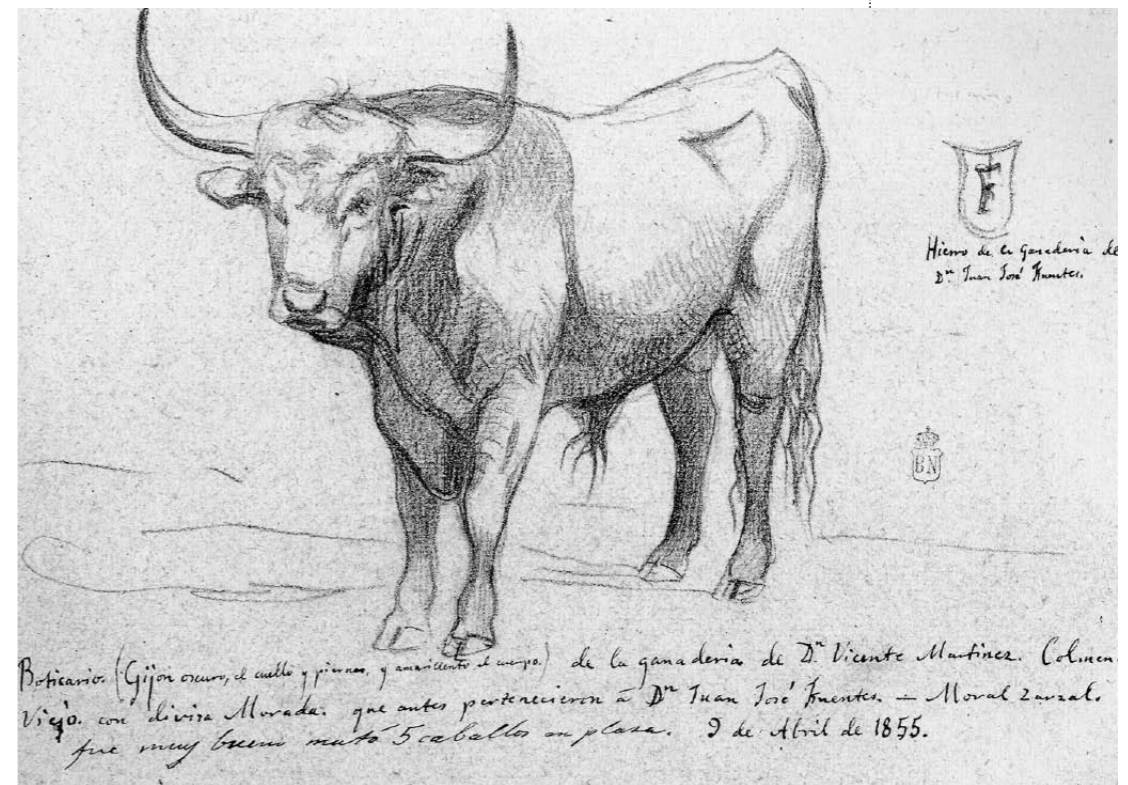 Hierro de la Ganaderia de
Dn Juan José Fuentes.
BN
Boticario. (Gijon oscuro, el cuello y piernas, y amarillento el cuerpo.) de la ganaderia de Dn Vicente Martinez. Colmen.
Viejo. con divisa Morada. que antes pertenecieron á Dn Juan José Fuentes. — Moralzarzal.
fue muy bueno mató 5 caballos en plaza. 9 de Abril de 1855.